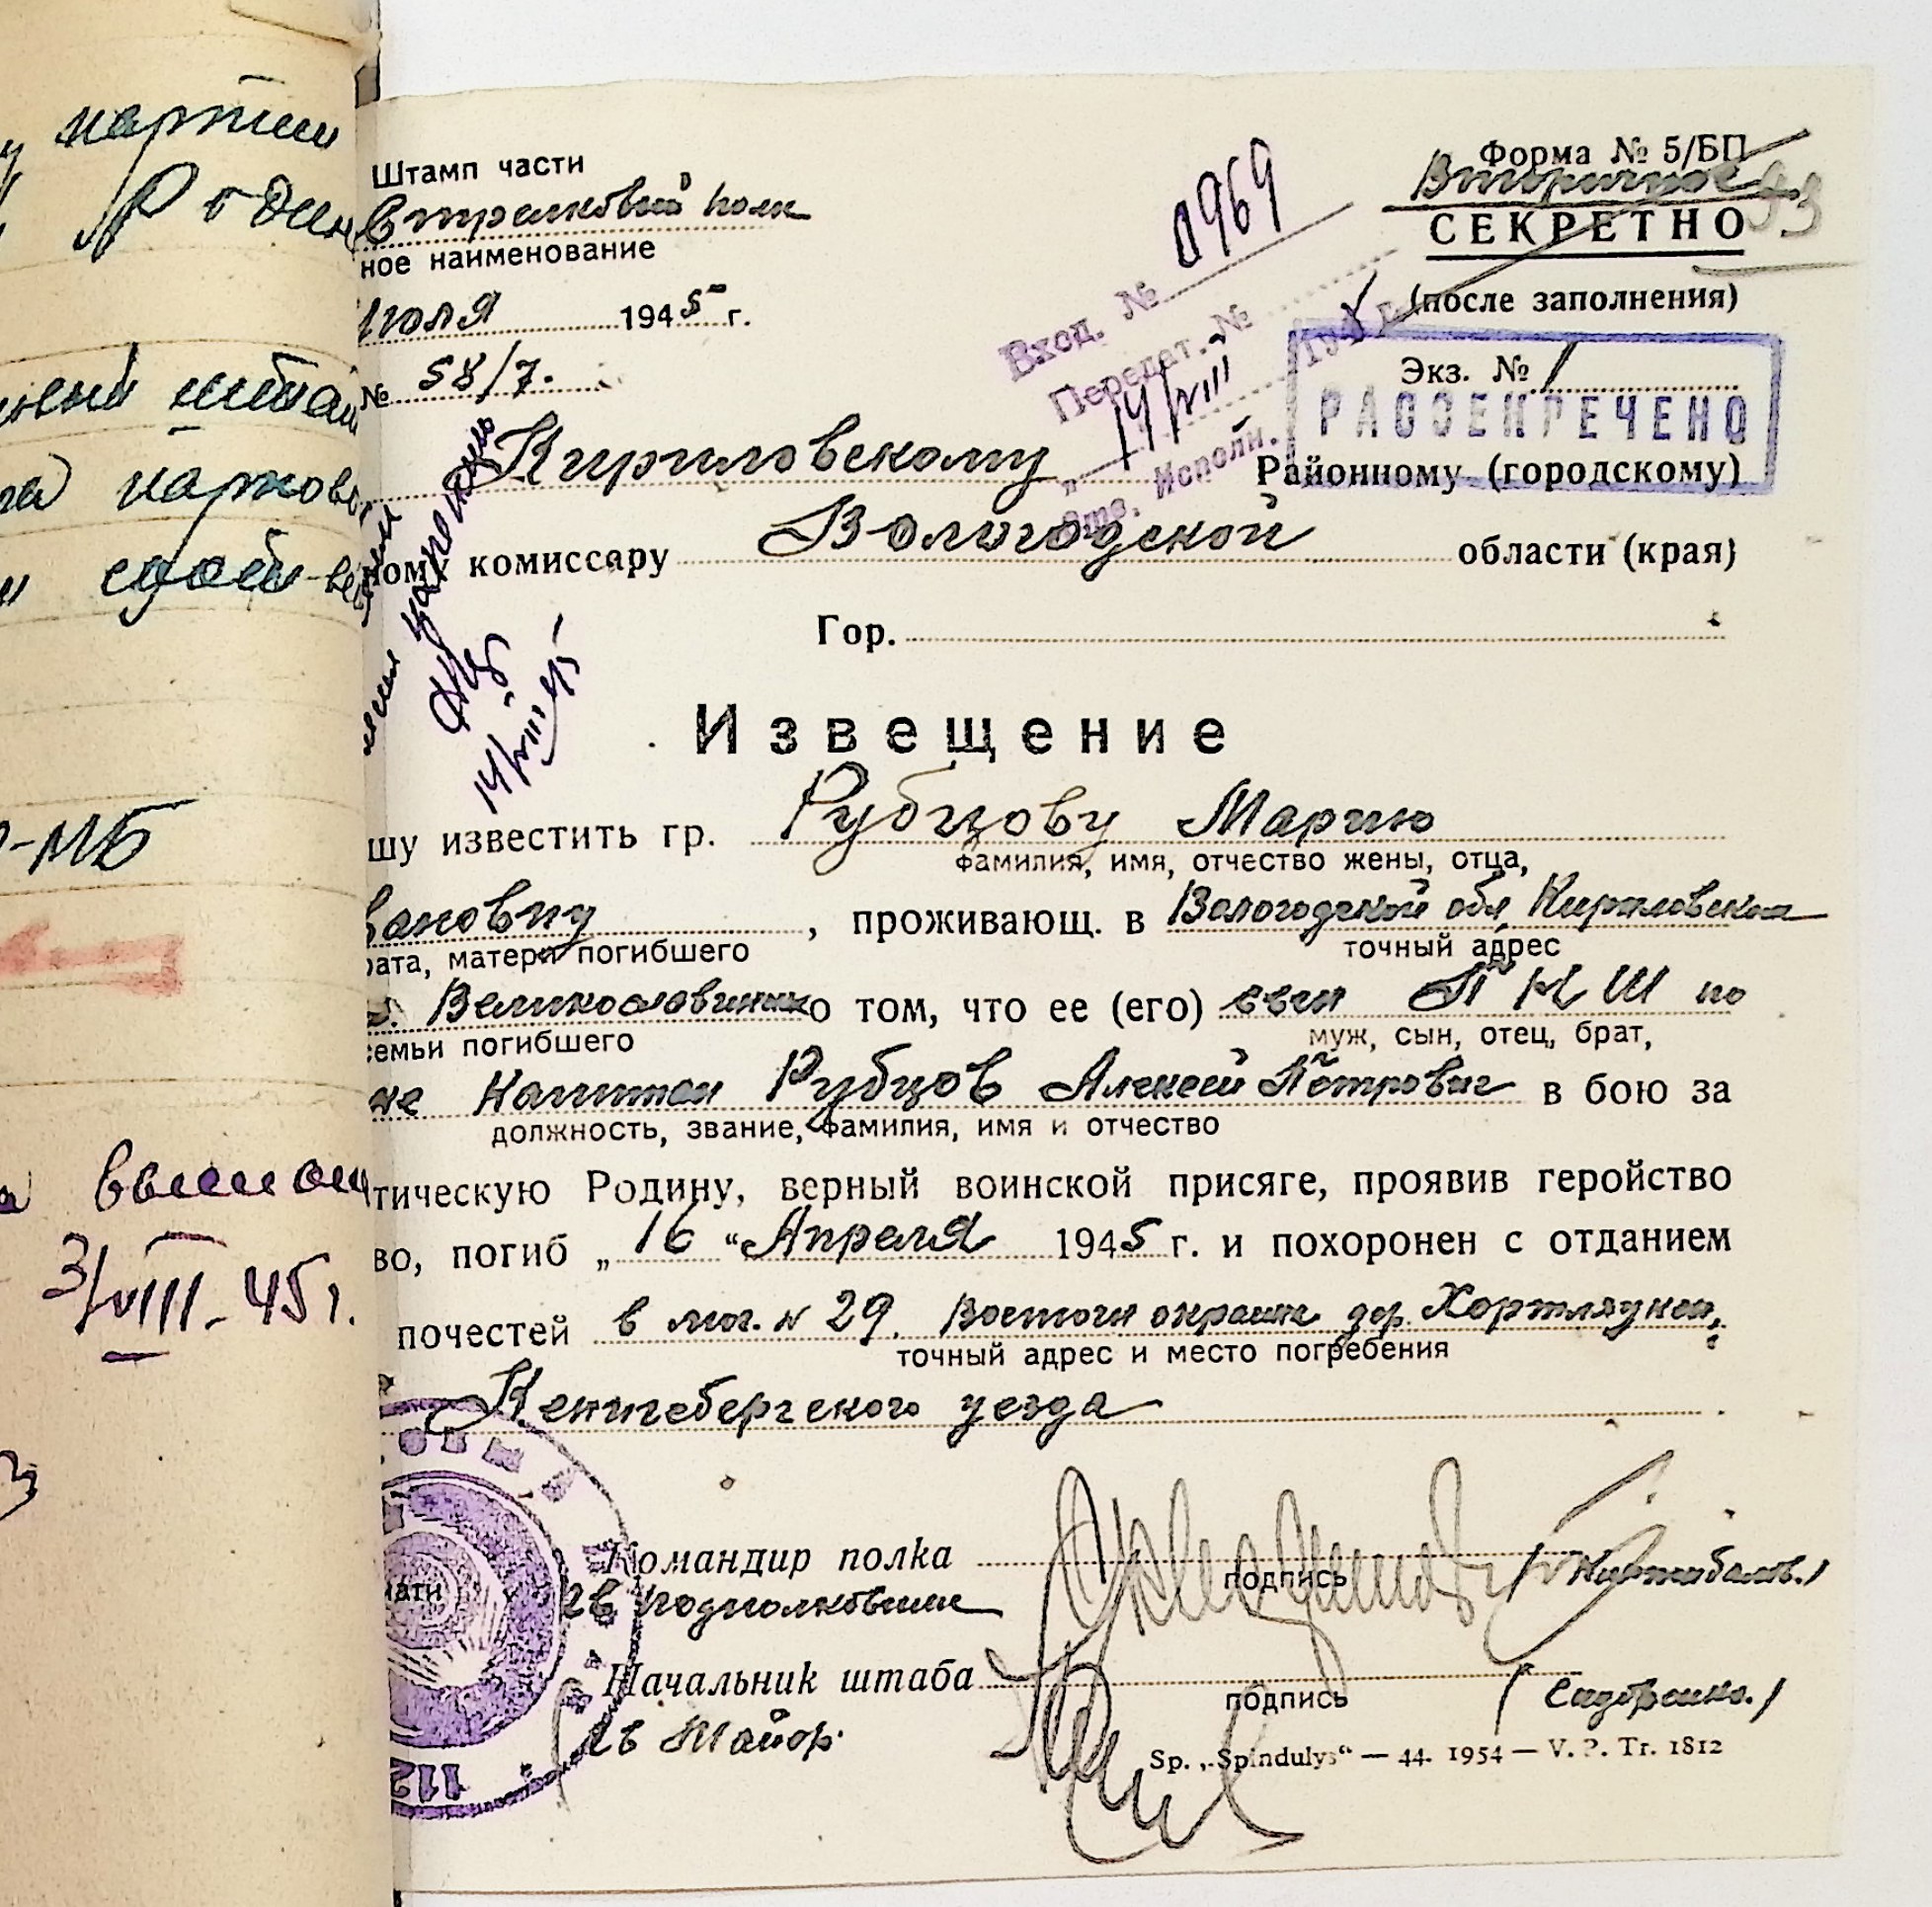 партии
Родин
штаб
парков
-МБ
3/VIII-45 г.
Штамп части
Форма № 5/БП
Вторичное
Стрелковый полк
СЕКРЕТНО
93
ное наименование
Июля 1945 г.
(после заполнения)
Вход. № 0969
Передат. №
14/VIII 1945 г.
Отв. Исполн.
№ 58/7.
Экз. № 1
РАССЕКРЕЧЕНО
Кирилловскому Районному (городскому)
ному комиссару Вологодской области (края)
Гор.
14/VIII 45
Извещение
шу известить гр. Рубцову Марию
фамилия, имя, отчество жены, отца,
вановну, проживающ. в Вологодской обл Кирилловском
рата, матери погибшего точный адрес
о том, что ее (его) сын ПНШ по
семьи погибшего муж, сын, отец, брат,
Капитан Рубцов Алексей Петрович в бою за
должность, звание, фамилия, имя и отчество
тическую Родину, верный воинской присяге, проявив геройство
во, погиб „16“ Апреля 1945 г. и похоронен с отданием
почестей в мог. N 29. Восточн окраина дер. Хортляукен,
точный адрес и место погребения
Кенигсбергского уезда
Командир полка
подпись
гв подполковник
Начальник штаба
подпись
(Сидоренко.)
гв Майор
чати
112
Sp. „Spindulys“ — 44. 1954 — V. P. Tr. 1812